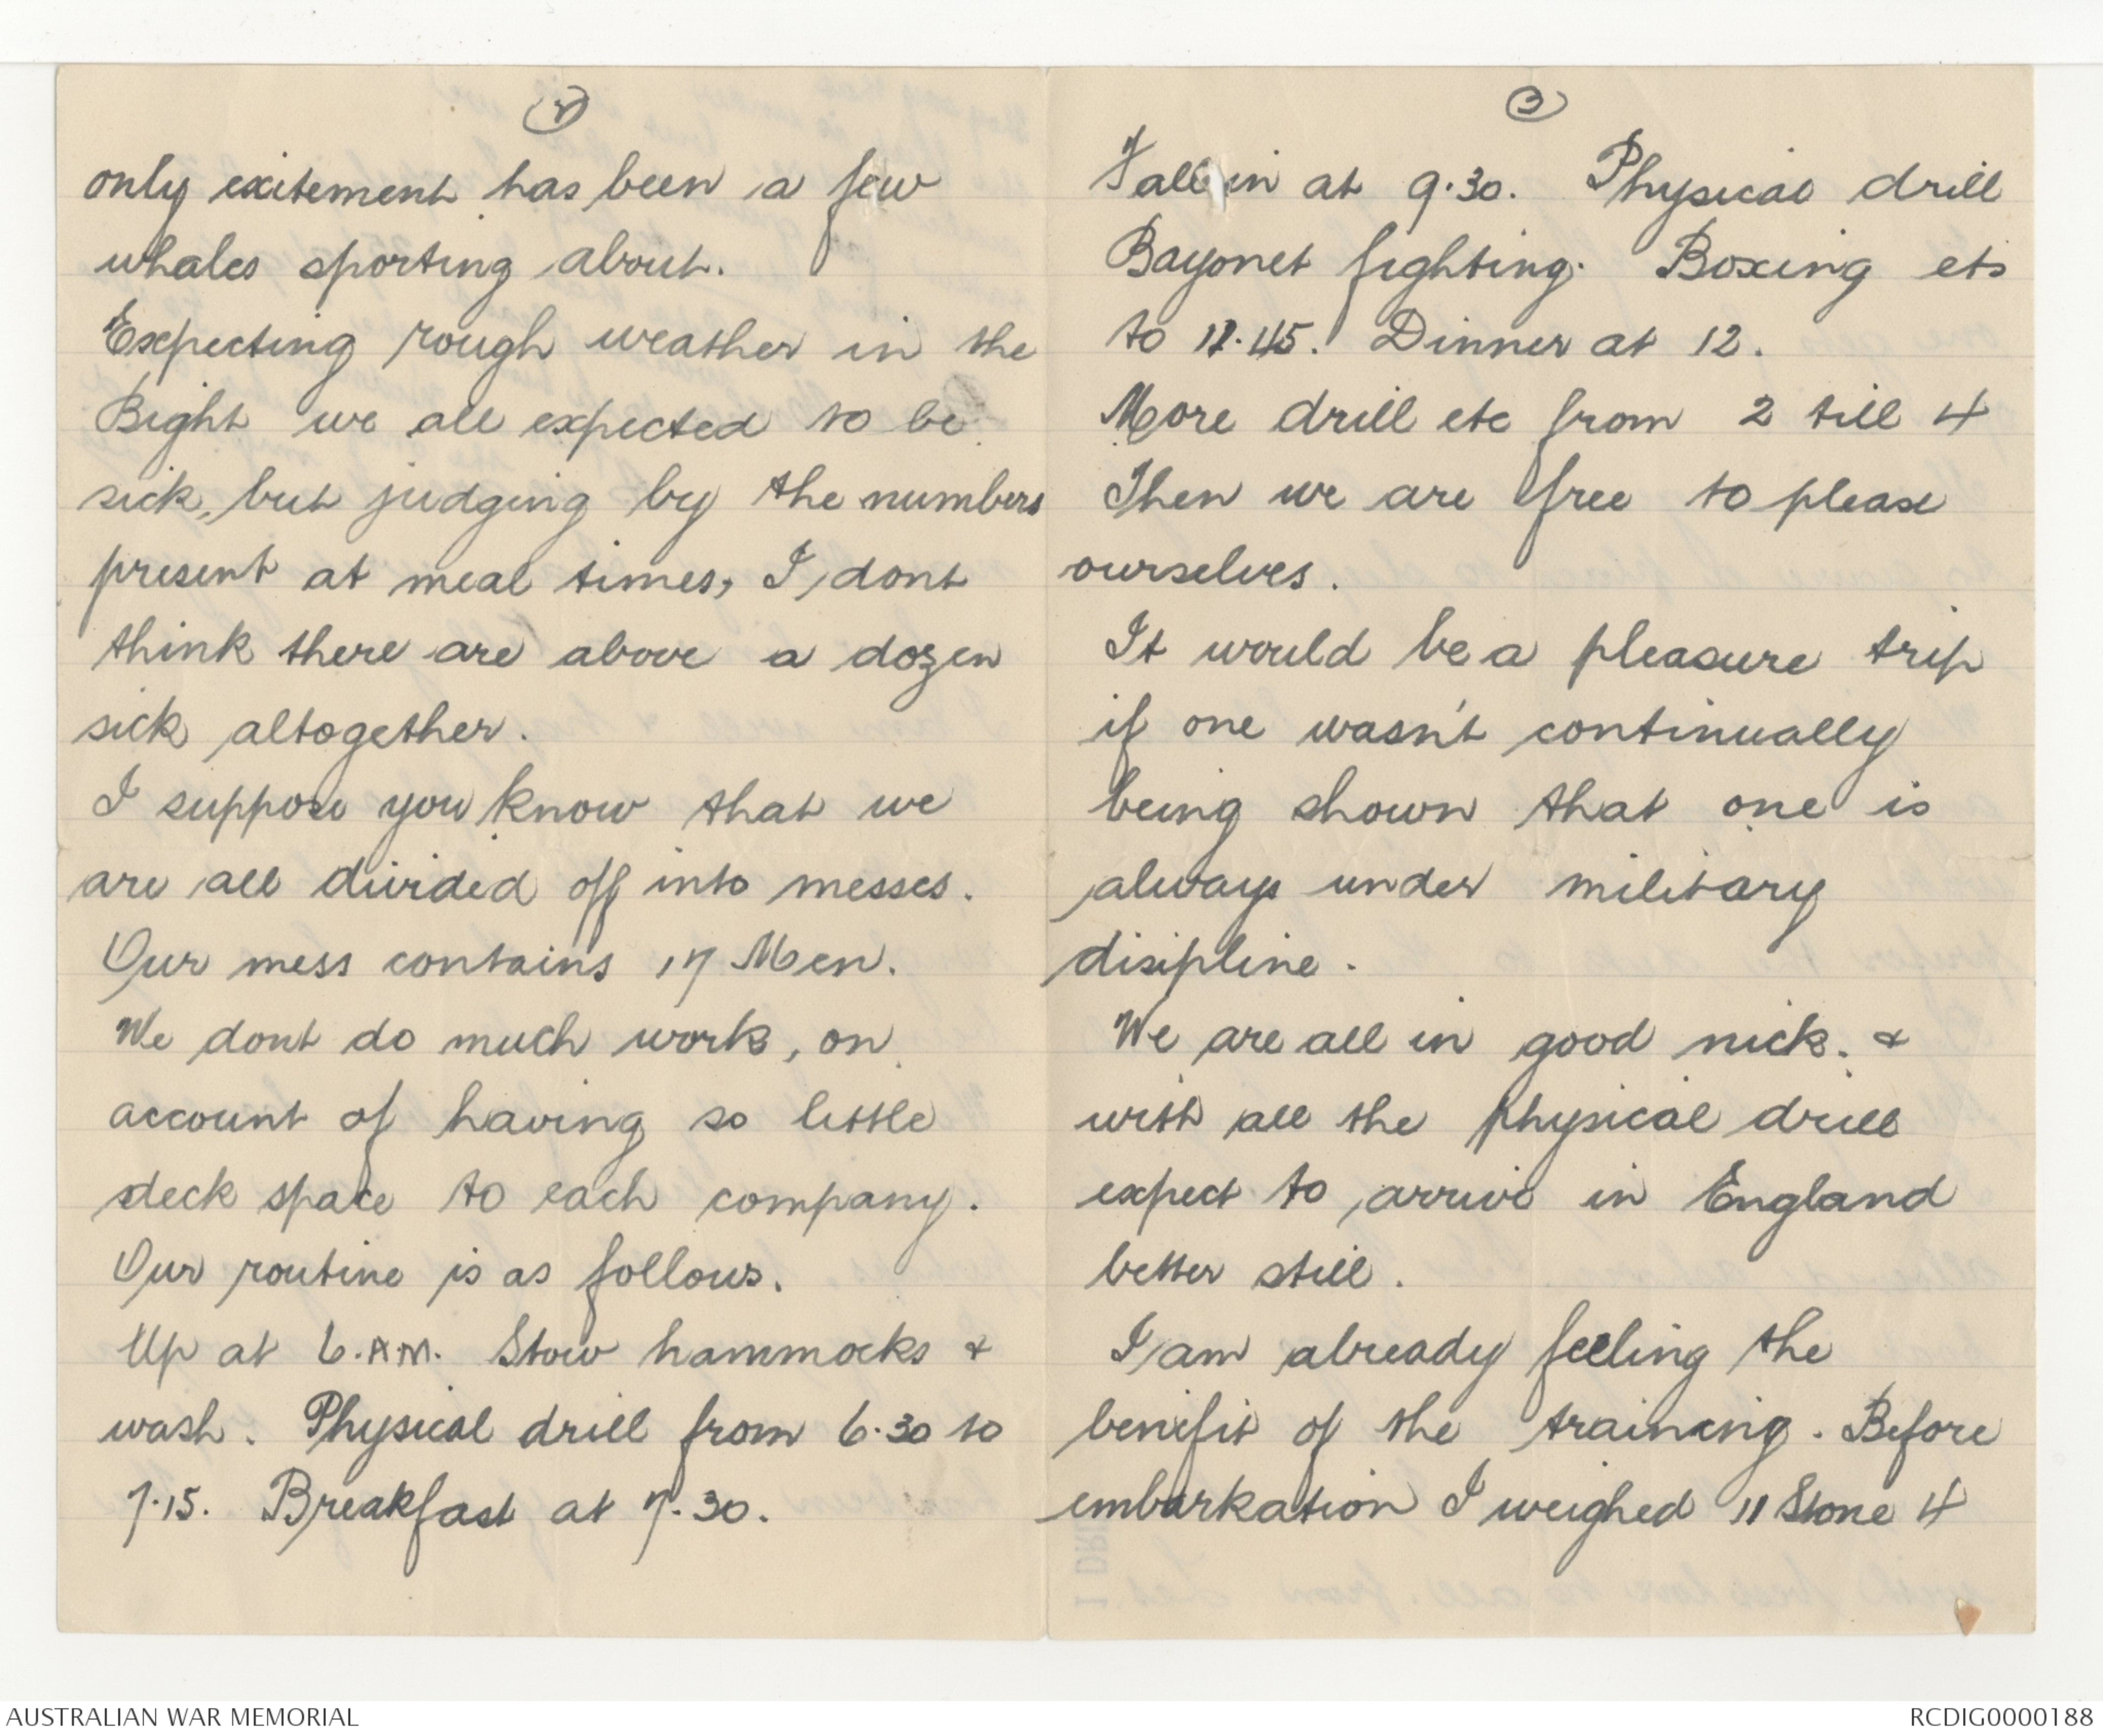 2
only exitement has been a few
whales sporting about.
Expecting rough weather in the
Bight we all expected to be
sick, but judging by the numbers
present at meal times, I dont
think there are above a dozen
sick altogether.
I suppose you know that we
are all divided off into messes.
Our mess contains 17 Men.
We dont do much work, on
account of having so little
deck space to each company.
Our routine is as follows.
Up at 6.AM. Stow hammocks &
wash. Physical drill from 6.30 to
7.15. Breakfast at 7.30.
3
Fall in at 9.30. Physical drill
Bayonet fighting. Boxing etc
to 11.45. Dinner at 12.
More drill etc from 2 till 4
Then we are free to please
ourselves.
It would be a pleasure trip
if one wasn't continually
being shown that one is
always under military
disipline.
We are all in good nick. &
with all the physical drill
expect to arrive in England
better still.
I am already feeling the
benifit of the training. Before
embarkation I weighed 11 Stone 4
AUSTRALIAN WAR MEMORIAL
RCDIG0000188